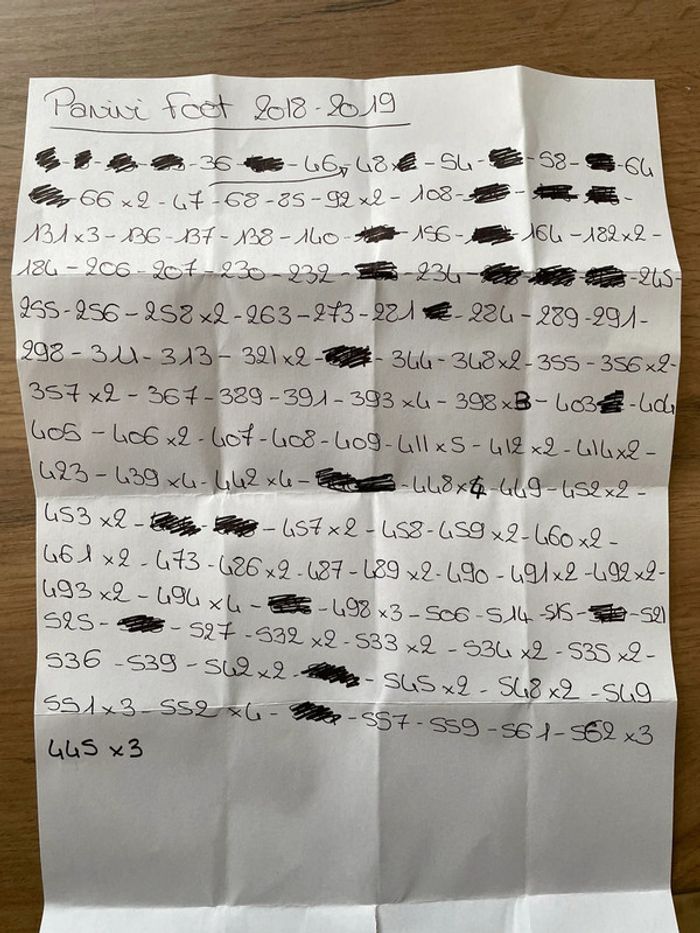 Panini Foot 2018-2019
36 - 46 - 48 - 54 - 58 - 64
- 66 x2 - 47 - 68 - 85 - 92 x2 - 108 -
131 x3 - 136 - 137 - 138 - 140 - 156 - 164 - 182 x2 -
184 - 206 - 207 - 230 - 232 - 234 - 245 -
255 - 256 - 258 x2 - 263 - 273 - 281 - 284 - 289 - 291 -
298 - 311 - 313 - 321 x2 - 344 - 348 x2 - 355 - 356 x2 -
357 x2 - 367 - 389 - 391 - 393 x4 - 398 x3 - 403 - 404
405 - 406 x2 - 407 - 408 - 409 - 411 x5 - 412 x2 - 414 x2 -
423 - 439 x4 - 442 x4 - 448 x4 - 449 - 452 x2 -
453 x2 - 457 x2 - 458 - 459 x2 - 460 x2 -
461 x2 - 473 - 486 x2 - 487 - 489 x2 - 490 - 491 x2 - 492 x2 -
493 x2 - 494 x4 - 498 x3 - 506 - 514 - 515 - 521
525 - 527 - 532 x2 - 533 x2 - 534 x2 - 535 x2 -
536 - 539 - 542 x2 - 545 x2 - 548 x2 - 549
551 x3 - 552 x4 - 557 - 559 - 561 - 562 x3
445 x3